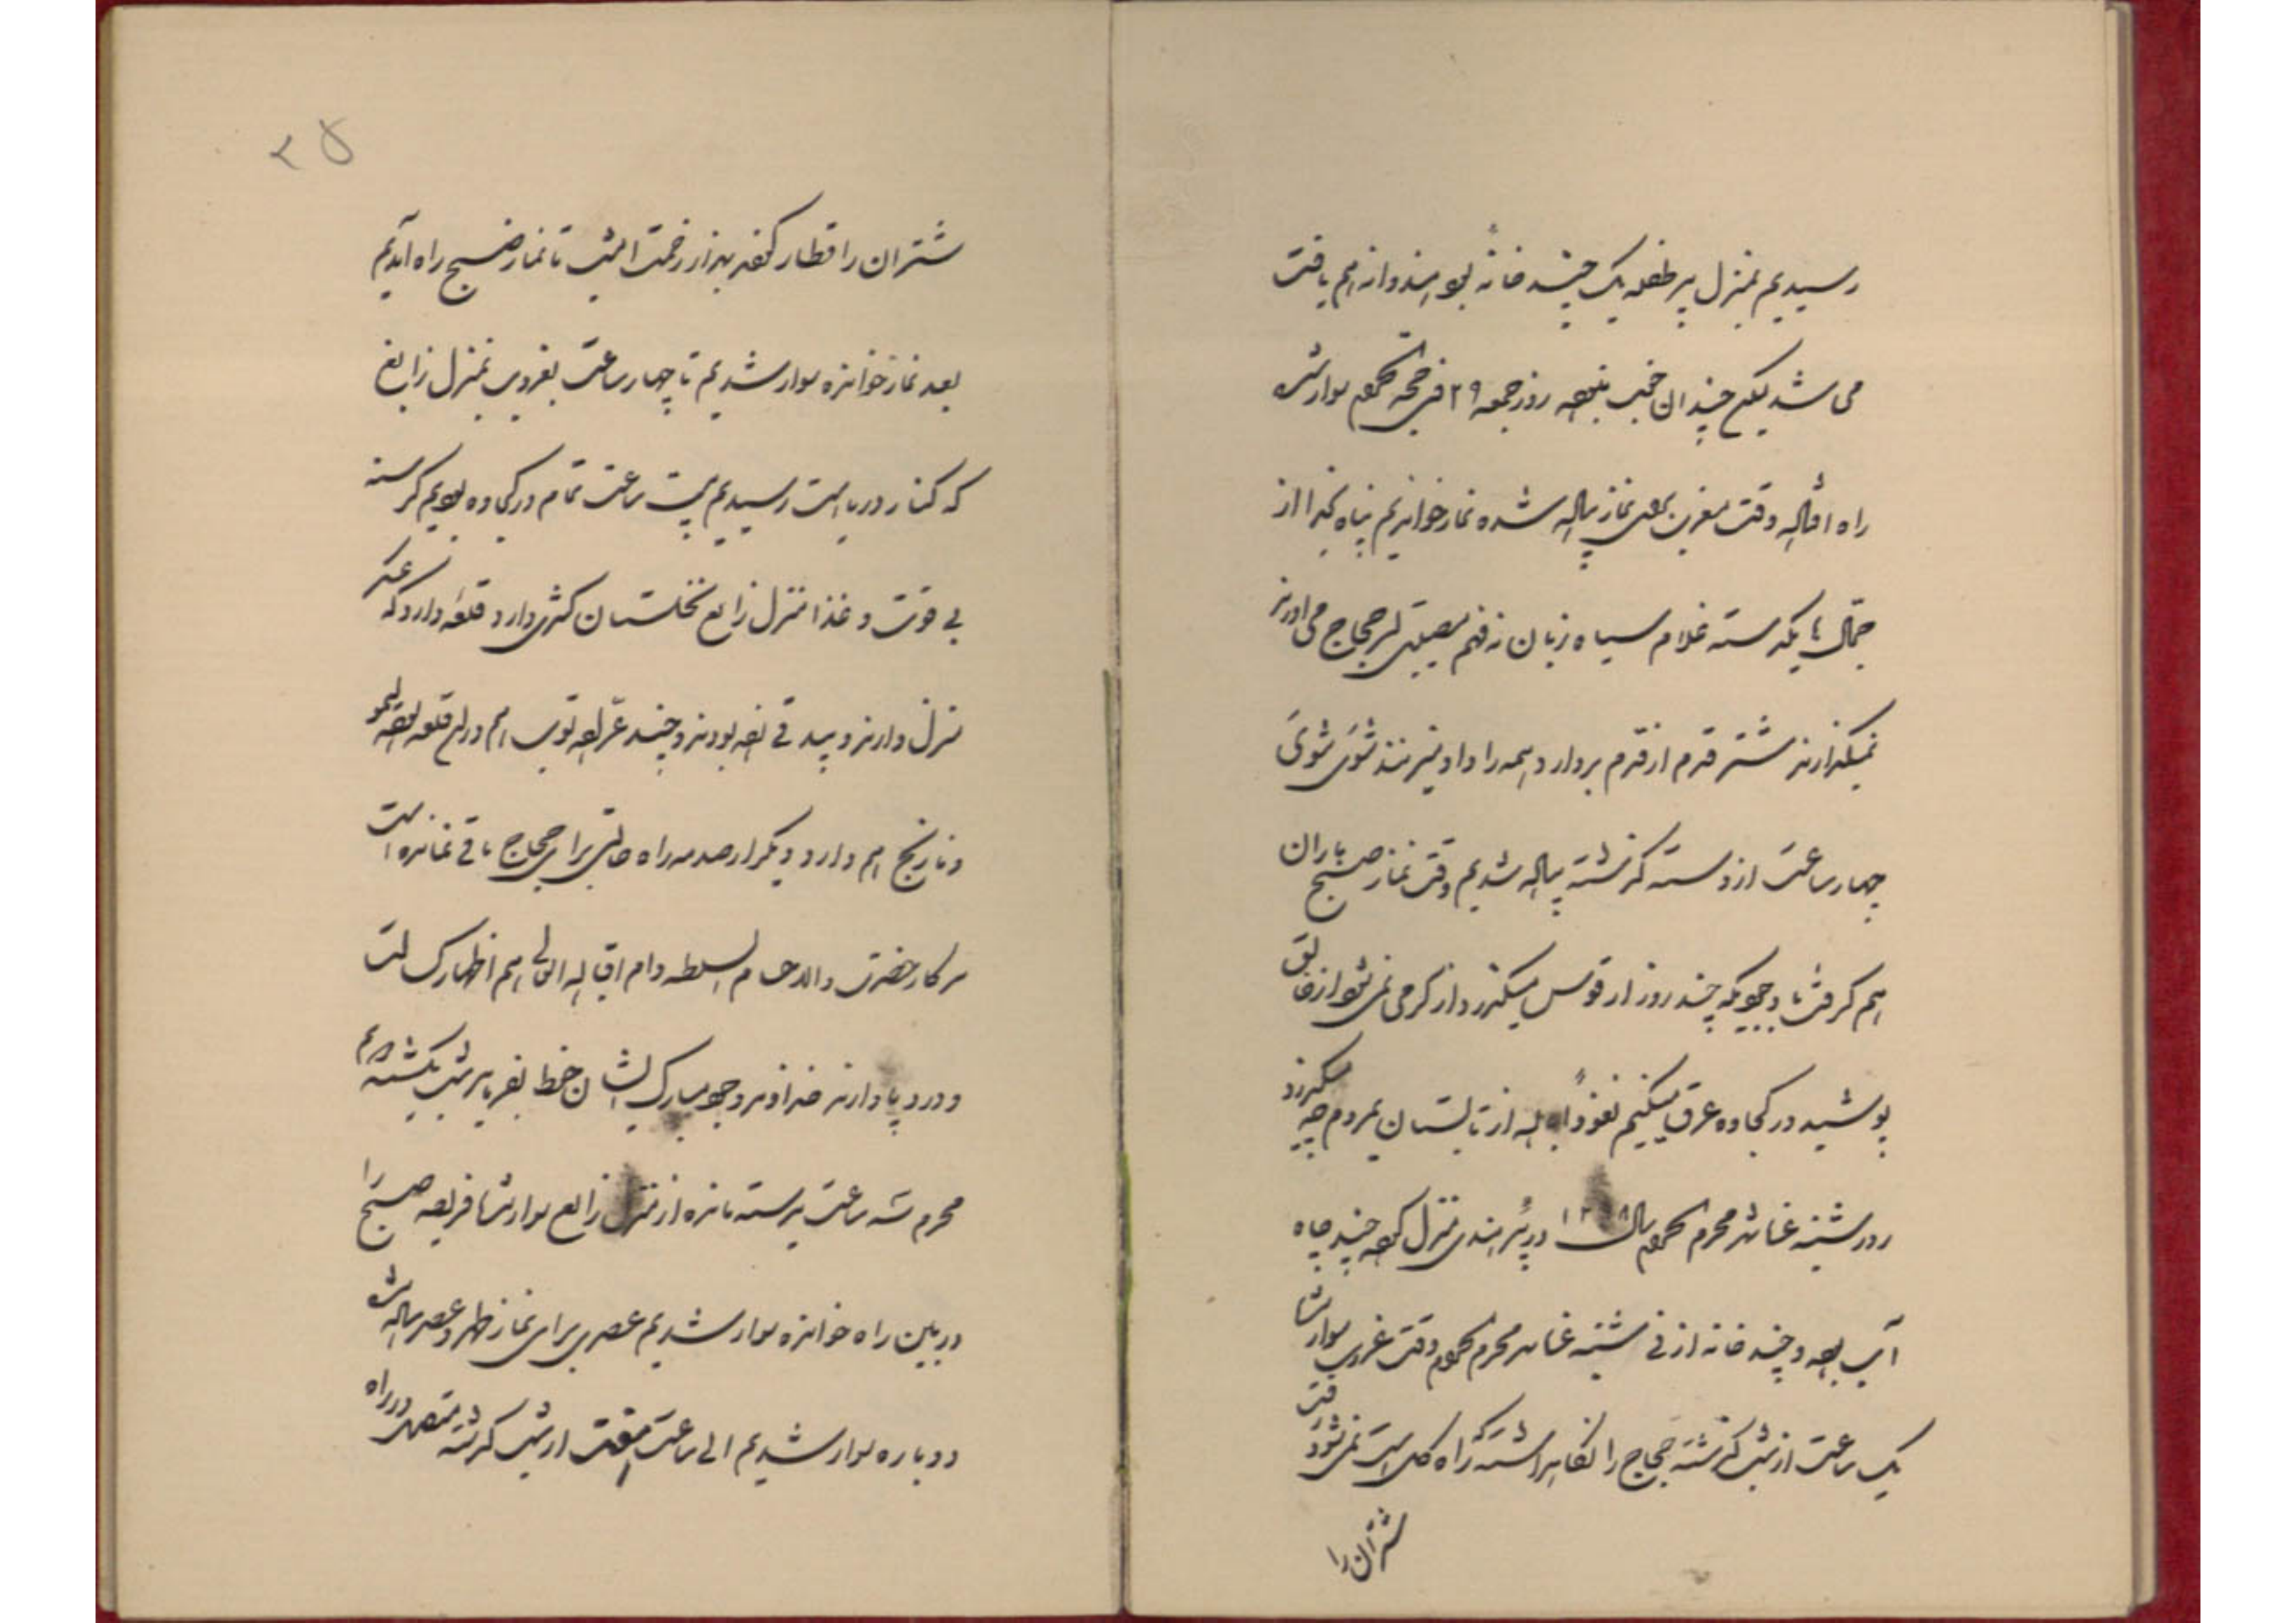 رسیدیم بمنزل بیر طفله یک چند خانه بود هندوانه هم یافت
می شد لیکن چندان خوب نبود روز جمعه ۲۹ ذی حجه الحرام سوار شده
راه افتاده وقت مغرب بجهة نماز پیاده شده نماز خواندیم پناه بخدا از
جمال ها یکدسته غلام سیاه زبان نفهم مصیبتی بسر حجاج می آورند
نمیگذارند شتر قدم از قدم بردارد همه را داد میزنند شوی شوی
چهار ساعت از دسته گذشته پیاده شدیم وقت نماز صبح باران
هم گرفت با وجودیکه چند روز از قوس میگذرد از گرمی نمی شود ارخالق
پوشید در کجاوه عرق میکنیم نعوذ بالله از تابستان بمردم چه میگذرد
روز شنبه غره شهر محرم الحرام سال ۱۳ در بئر هندی منزل کرده چند چاه
آب بود و چند خانه از نی شنبه غره محرم الحرام وقت غروب سوار شده
یک ساعت از شب گذشته حجاج را نگاهداشته که راه گل است نمی شود رفت
شتران را
۲۵
شتران را قطار کرده بهزار زحمت امشب تا نماز صبح راه آمدیم
بعد نماز خوانده سوار شدیم تا چهار ساعت بغروب بمنزل رابغ
که کنار دریا است رسیدیم بیست ساعت تمام در کجاوه بودیم گرسنه
بی قوت و غذا منزل رابغ نخلستان کثیری دارد قلعه دارد که عسکر
منزل دارند و بیدقی زده بودند و چند عراده توپ هم در این قلعه بود لیمو
و نارنج هم دارد دیگر از صدمه راه حالتی برای حجاج باقی نمانده است
سرکار حضرت والا حسام السلطنه دام اقباله العالی هم اظهار کسالت
و درد پا دارند خداوند وجود مبارک ایشان حفظ بفرماید شب یکشنبه دویم
محرم سه ساعت بدسته مانده از منزل رابغ سوار شده فریضه صبح را
در بین راه خوانده سوار شدیم عصری برای نماز ظهر و عصر پیاده شده
دوباره سوار شدیم الی ساعت هفت از شب گذشته متصل در راه